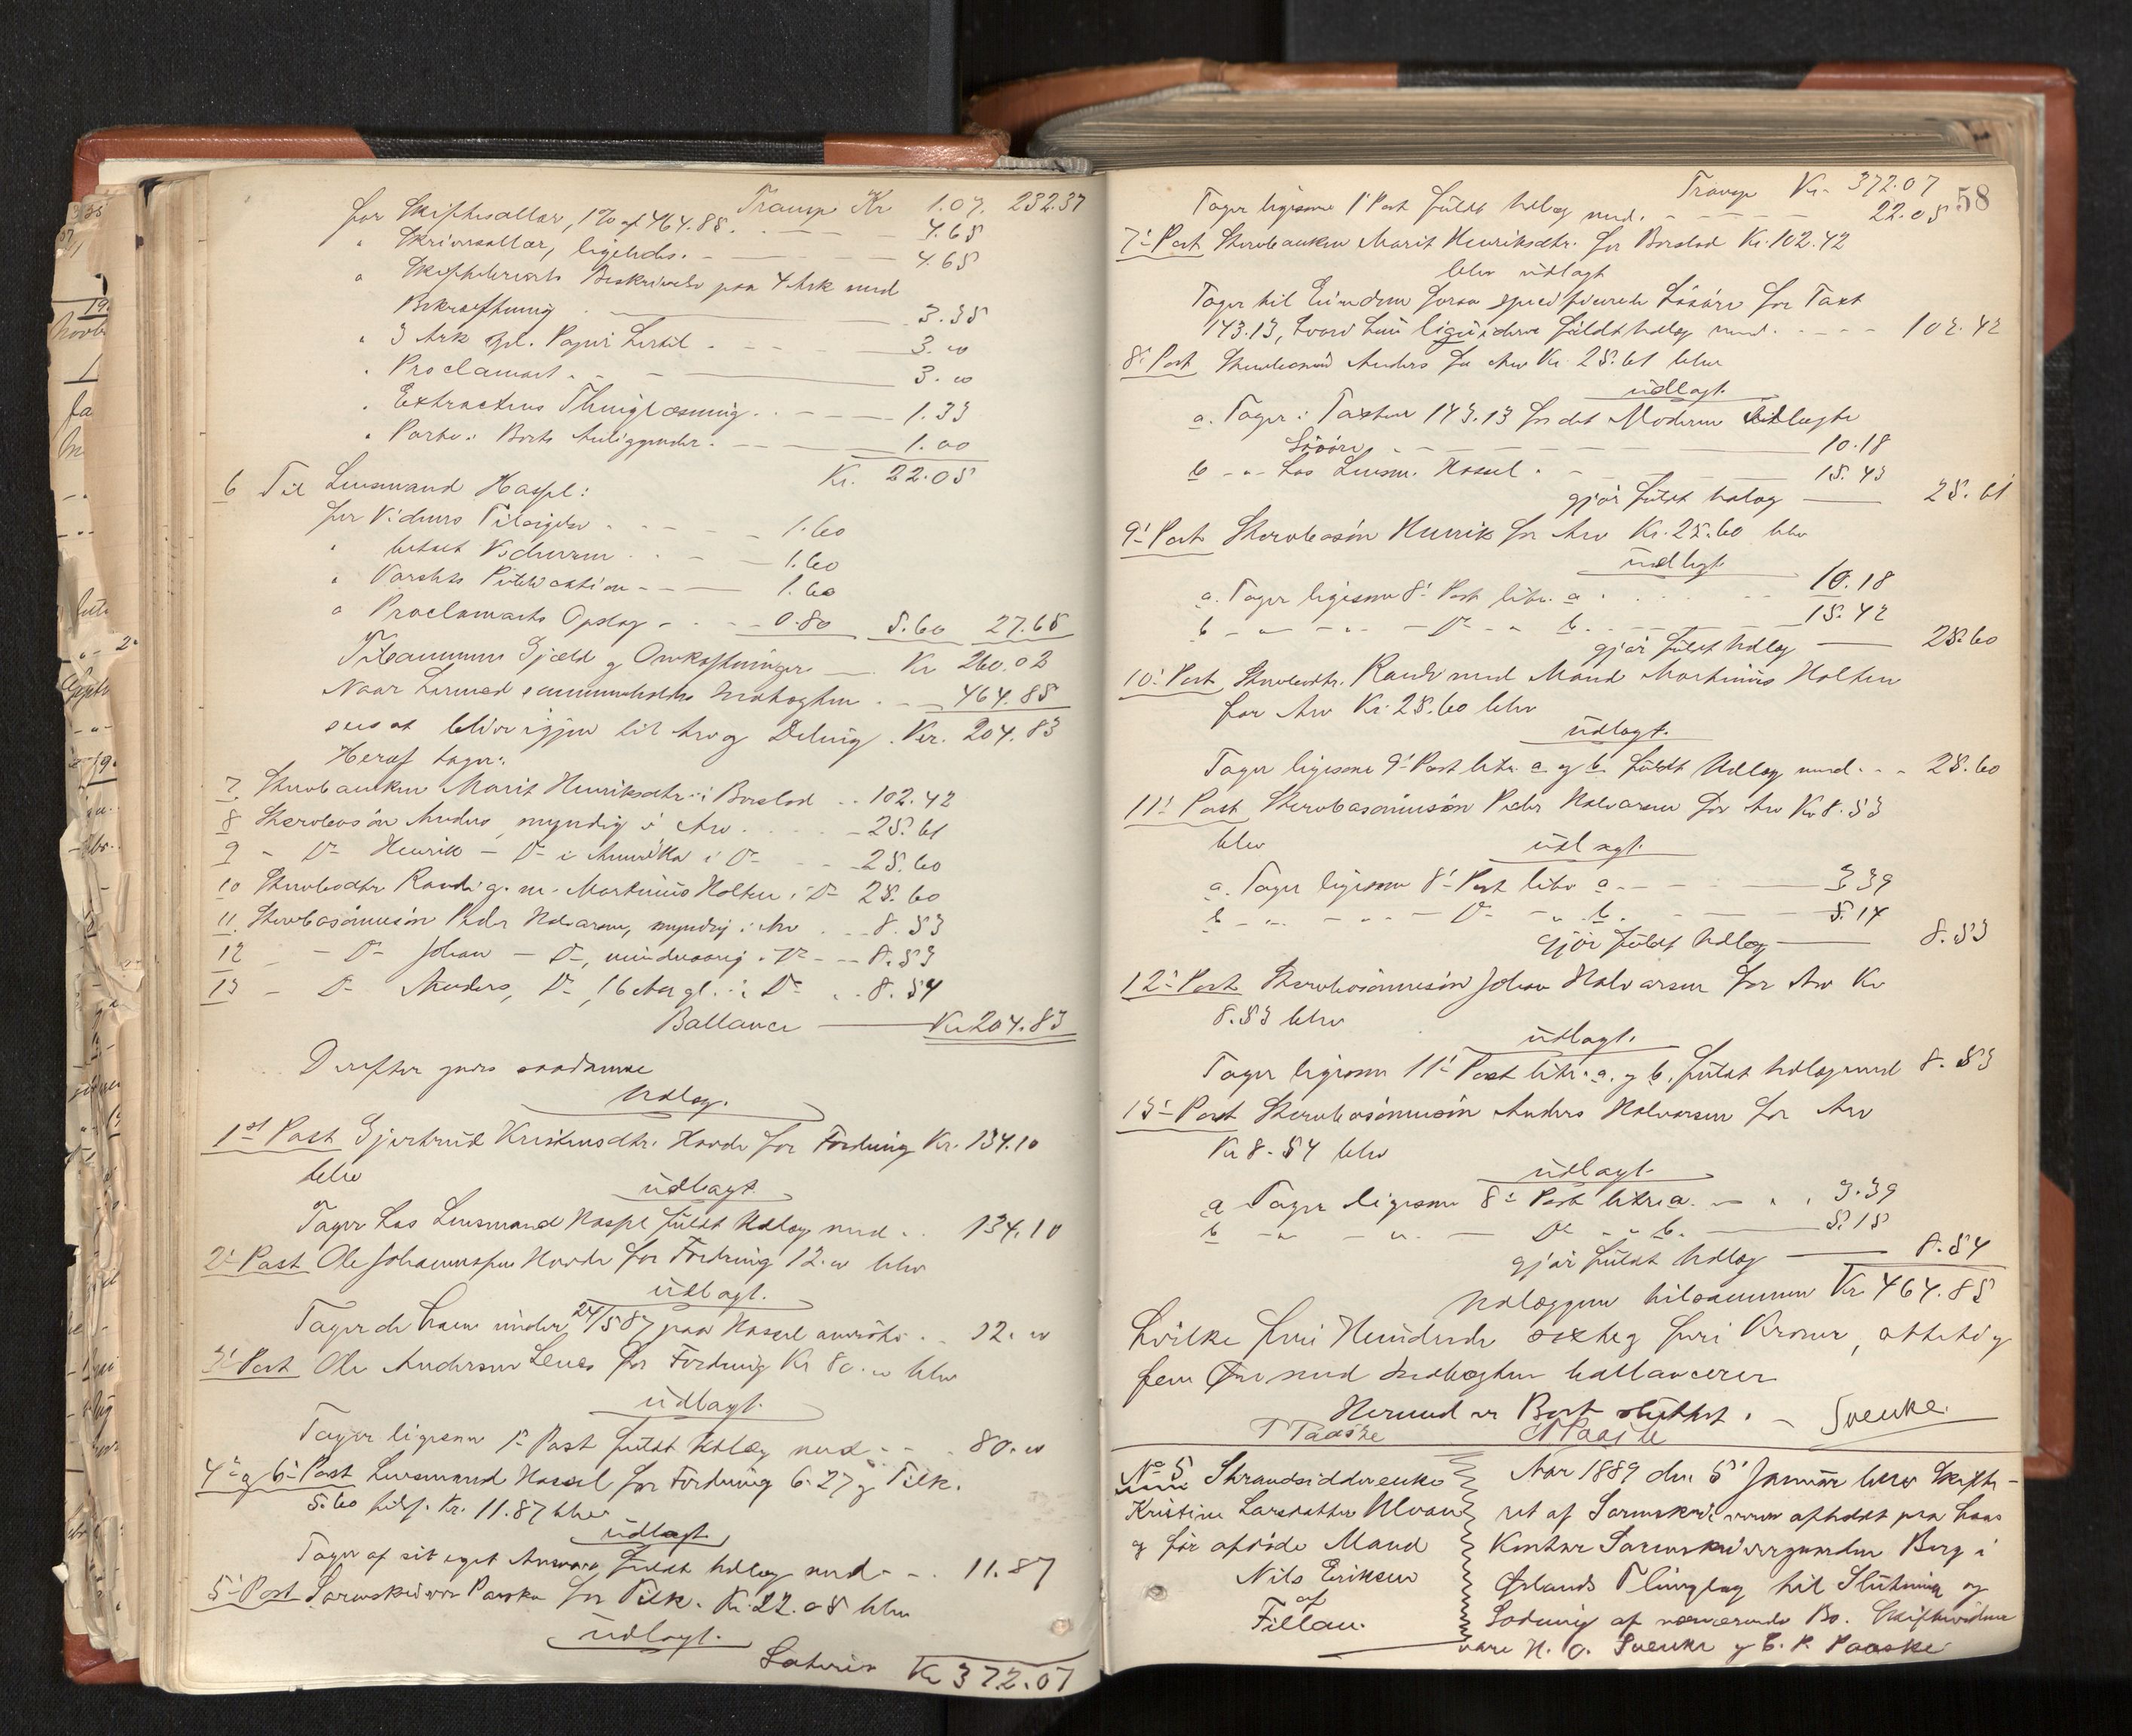 Transp Kr 1.07. 232.37
for Skiftesallær, 1% af 464.85. 4.65
" Skriversallær, ligeledes. 4.65
" Skiftebrevets Beskrivelse paa 4 Ark med
Bekræftning 3.35
" 3 Ark gl. Papir hertil 3.00
" Proclamaet 3.00
" Extractens Thinglæsning 1.33
" Porto i Boets Anliggender 1.00
Kr. 22.05
6 Til Lensmand Hassel:
for Vidners Tilsigelse 1.60
" betalt Vidnerne 1.60
" Varslets Publication 1.60
" Proclamaets Opslag 0.80 5.60 27.65
Tilsammen Gjæld og Omkostninger Kr 260.02
Naar hermed sammenholdes Indtægten 464.85
sees at blive igjen til Arv og Deling. Kr. 204.83
Heraf tager:
7 Sterboenken Marit Henriksdtr. i Boeslod 102.42
8 Sterbosøn Anders, myndig i Arv 25.61
9 - Do Henrik - Do i Amerika i Do 25.60
10 Sterbodtr Randi g. m. Martinus Holten i Do 25.60
11. Sterbosønnesøn Peder Halvorsen, myndig i Arv 8.53
12 - Do Johan - Do, mindreaarig i Do 8.53
13 - Do Anders, Do, 16 Aar gl. i Do 8.54
Ballance Kr 204.83
Derefter gjøres saadanne
Udlæg.
1st Post Gjertrud Kristensdtr. Hovde for Fordring Kr. 134.10
blev
udlagt
Tager hos Lensmand Hassel fuldt Udlæg med 134.10
2' Post Ole Johannessen Hovde for Fordring 12.00 blev
udlagt.
Tager de ham under 24/5 87 paa Hassel anviste 12.00
3' Post Ole Andersen for Fordring Kr 80.00 blev
udlagt.
Tager ligesom 1' Post fuldt Udlæg med 80.00
4' og 6' Post Lensmand Hassel for Fordring 6.27 og Tilk.
5.60 tils. Kr. 11.87 blev
udlagt
Tager af sit eget Ansvar fuldt Udlæg med 11.87
5' Post Sorenskriver Paaske for Tilk. Kr. 22.05 blev
udlagt.
Lateris Kr 372.07
58
Transp Kr. 372.07
Tager ligesom 1' Post fuldt Udlæg med. 22.05
7' Post Sterboenken Marit Henriksdtr. for Boeslod Kr. 102.42
blev udlagt
Tager til Eiendom foran specificerede Løsøre for Taxt
143.13, hvori hun liquiderer fuldt Udlæg med. 102.42
8' Post Sterbosønnen Anders for Arv Kr 25.61 blev
udlagt.
a. Tager i Taxten 143.13 for det Moderen udlagte
Løsøre 10.18
b - " - hos Lensm. Hassel 15.43
gjør fuldt Udlæg 25.61
9' Post Sterbosøn Henrik for Arv Kr. 25.60 blev
udlagt
a. Tager ligesom 8' Post litr. a 10.18
b - " - " - Do - " b. 15.42
gjør fuldt Udlæg 25.60
10' Post Sterbodtr. Randi med Mand Martinus Holten
for Arv Kr. 25.60 blev
udlagt.
Tager ligesom 9' Post litr. a og b fuldt Udlæg med 25.60
11' Post Sterbosønnesøn Peder Halvorsen for Arv Kr 8.53
blev udlagt.
a. Tager ligesom 8' Post litr a 3.39
b - " - " - Do - " b. 5.14
gjør fuldt Udlæg 8.53
12' Post Sterbosønnesøn Johan Halvorsen for Arv Kr
8.53 blev
udlagt.
Tager ligesom 11' Post litr. a. og b. fuldt Udlæg med 8.53
13' Post Sterbosønnesøn Anders Halvorsen for Arv
Kr 8.54 blev
udlagt.
a Tager ligesom 8' Post litr. a. 3.39
b - " - " - Do - " b. 5.15
gjør fuldt Udlæg 8.54
Udlæggene tilsammen Kr 464.85
hvilke fire Hundrede sexti og fire Kroner, otteti og
fem Øre med Indtægten ballancerer
Hermed er Boet sluttet.
T Paaske Paaske Svenke.
No 5 Strandsidderenke
Kristine Larsdatter Ulvan
og før afdøde Mand
Nils Eriksen
af
Fillan.
Aar 1889 den 5' Januar blev Skifte-
ret af Sorenskriveren afholdt paa hans
Kontor Sorenskrivergaarden Berg i
Ørlands Thinglag til Slutning og
Lodning af nærværende Bo. Skiftevidner
vare H. O. Svenke og C. P. Paaske